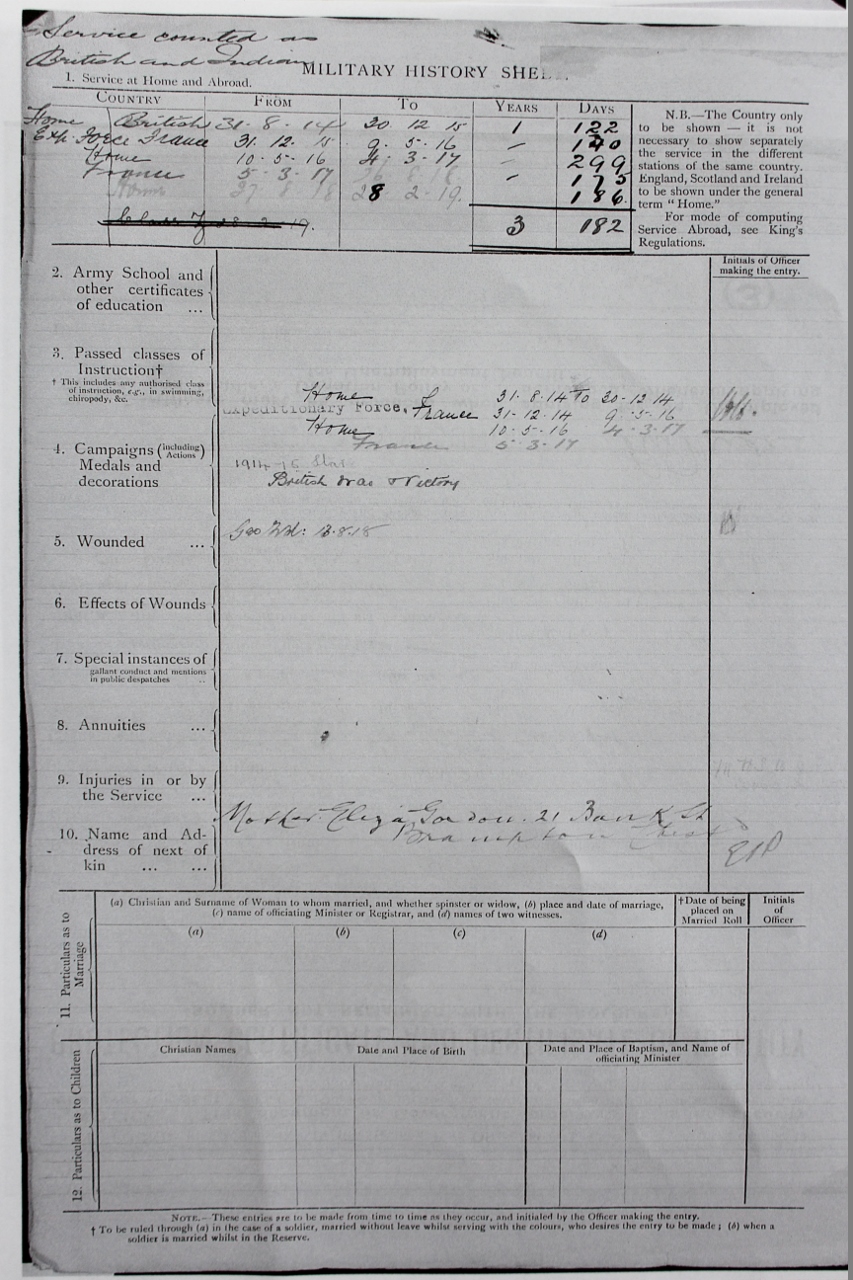 Service counted as
British and Indian
MILITARY HISTORY SHE
1. Service at Home and Abroad.
COUNTRY FROM TO YEARS DAYS
Home British 31 · 8 · 14 30 12 15 1 122
Exp. Force France 31 · 12 · 15 9 · 5 · 16 — 130
Home 10 · 5 · 16 4 · 3 · 17 — 299
France 5 · 3 · 17 26 8 18 — 175
Home 27 8 18 28 2 19. 186
Class Z 28 2 19.
3 182
N.B.—The Country only
to be shown — it is not
necessary to show separately
the service in the different
stations of the same country.
England, Scotland and Ireland
to be shown under the general
term "Home."
For mode of computing
Service Abroad, see King's
Regulations.
Initials of Officer
making the entry.
2. Army School and
other certificates
of education ...
3. Passed classes of
Instruction†
† This includes any authorised class
of instruction, e.g., in swimming,
chiropody, &c.
Home 31 · 8 · 14 to 30 · 12 14
Expeditionary Force, France 31 · 12 · 14 9 · 5 · 16
Home 10 · 5 · 16 4 · 3 · 17
France 5 · 3 · 17
4. Campaigns (including Actions)
Medals and
decorations
1914-15 Star
British War & Victory
5. Wounded ...
Gas Wd: 13.8.18
6. Effects of Wounds
7. Special instances of
gallant conduct and mentions
in public despatches ..
8. Annuities ...
9. Injuries in or by
the Service ...
10. Name and Ad-
dress of next of
kin ... ...
Mother Eliza Gordon. 21 Bank St
Brampton Chest
11. Particulars as to
Marriage
(a) Christian and Surname of Woman to whom married, and whether spinster or widow, (b) place and date of marriage,
(c) name of officiating Minister or Registrar, and (d) names of two witnesses.
† Date of being
placed on
Married Roll
Initials
of
Officer
(a) (b) (c) (d)
12. Particulars as to Children
Christian Names
Date and Place of Birth
Date and Place of Baptism, and Name of
officiating Minister
NOTE.—These entries are to be made from time to time as they occur, and initialed by the Officer making the entry.
† To be ruled through (a) in the case of a soldier, married without leave whilst serving with the colours, who desires the entry to be made ; (b) when a
soldier is married whilst in the Reserve.